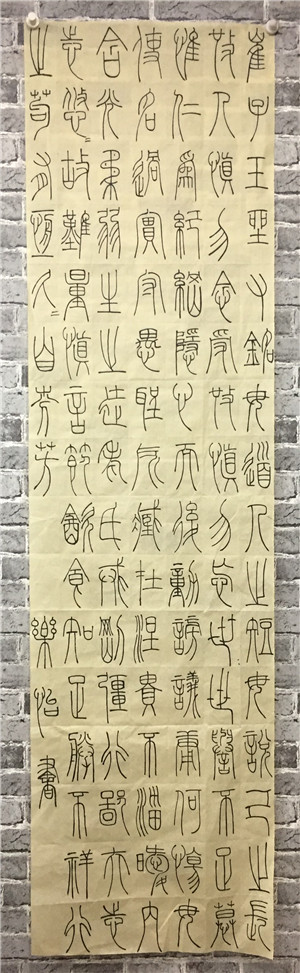 崔子玉坐右銘毋道人之短毋說己之長
施人慎勿念受施慎勿忘世世譽不足慕
惟仁為紀綱隱心而後動謗議庸何傷毋
使名過實守愚聖所臧在涅貴不淄曖〻內
含光柔弱生之徒老氏戒剛彊行鄙夫志
志悠〻故難量慎言節飲食知足勝不祥行
之苟有恆久〻自芬芳
樂怡書